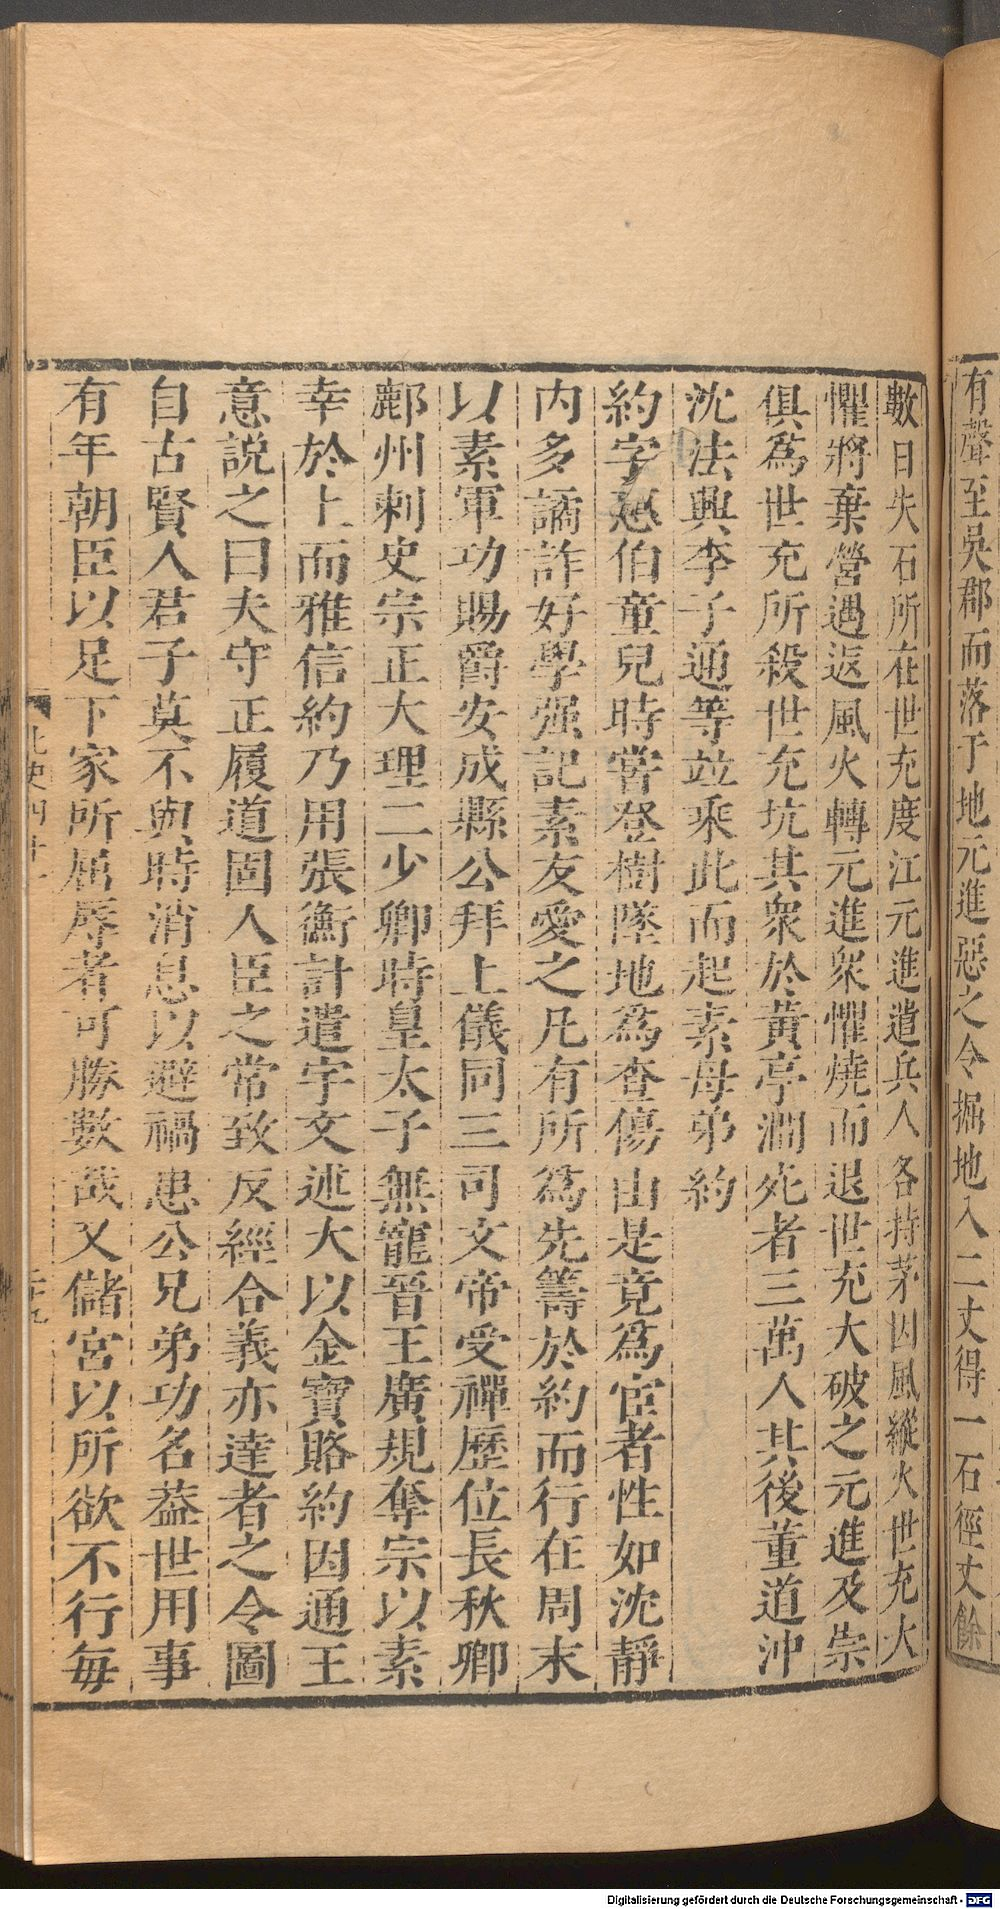 有聲至吳郡而落于地元進惡之令掘地入二丈得一石徑丈餘
數日失石所在世充度江元進遣兵人各持茅因風縱火世充大
懼將棄營遇返風火轉元進衆懼燒而退世充大破之元進及崇
俱爲世充所殺世充坑其衆於黃亭澗死者三萬人其後董道沖
沈法興李子通等竝乘此而起素母弟約
約字惠伯童兒時嘗登樹墜地爲查傷由是竟爲宦者性如沈靜
内多譎詐好學强記素友愛之凡有所爲先籌於約而行在周末
以素軍功賜爵安成縣公拜上儀同三司文帝受禪歷位長秋卿
鄜州刺史宗正大理二少卿時皇太子無寵晉王廣規奪宗以素
幸於上而雅信約乃用張衡計遣宇文述大以金寶賂約因通王
意說之曰夫守正履道固人臣之常致反經合義亦達者之令圖
自古賢人君子莫不與時消息以避禍患公兄弟功名葢世用事
有年朝臣以足下家所屈辱者可勝數哉又儲宮以所欲不行每
北史四十一
二十九
Digitalisierung gefördert durch die Deutsche Forschungsgemeinschaft - DFG